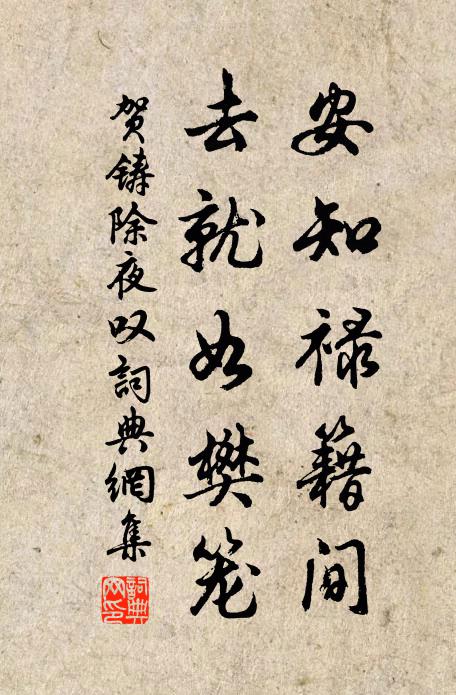 安知禄籍间
去就如樊笼
贺铸除夜叹詞典網集
詞典网印